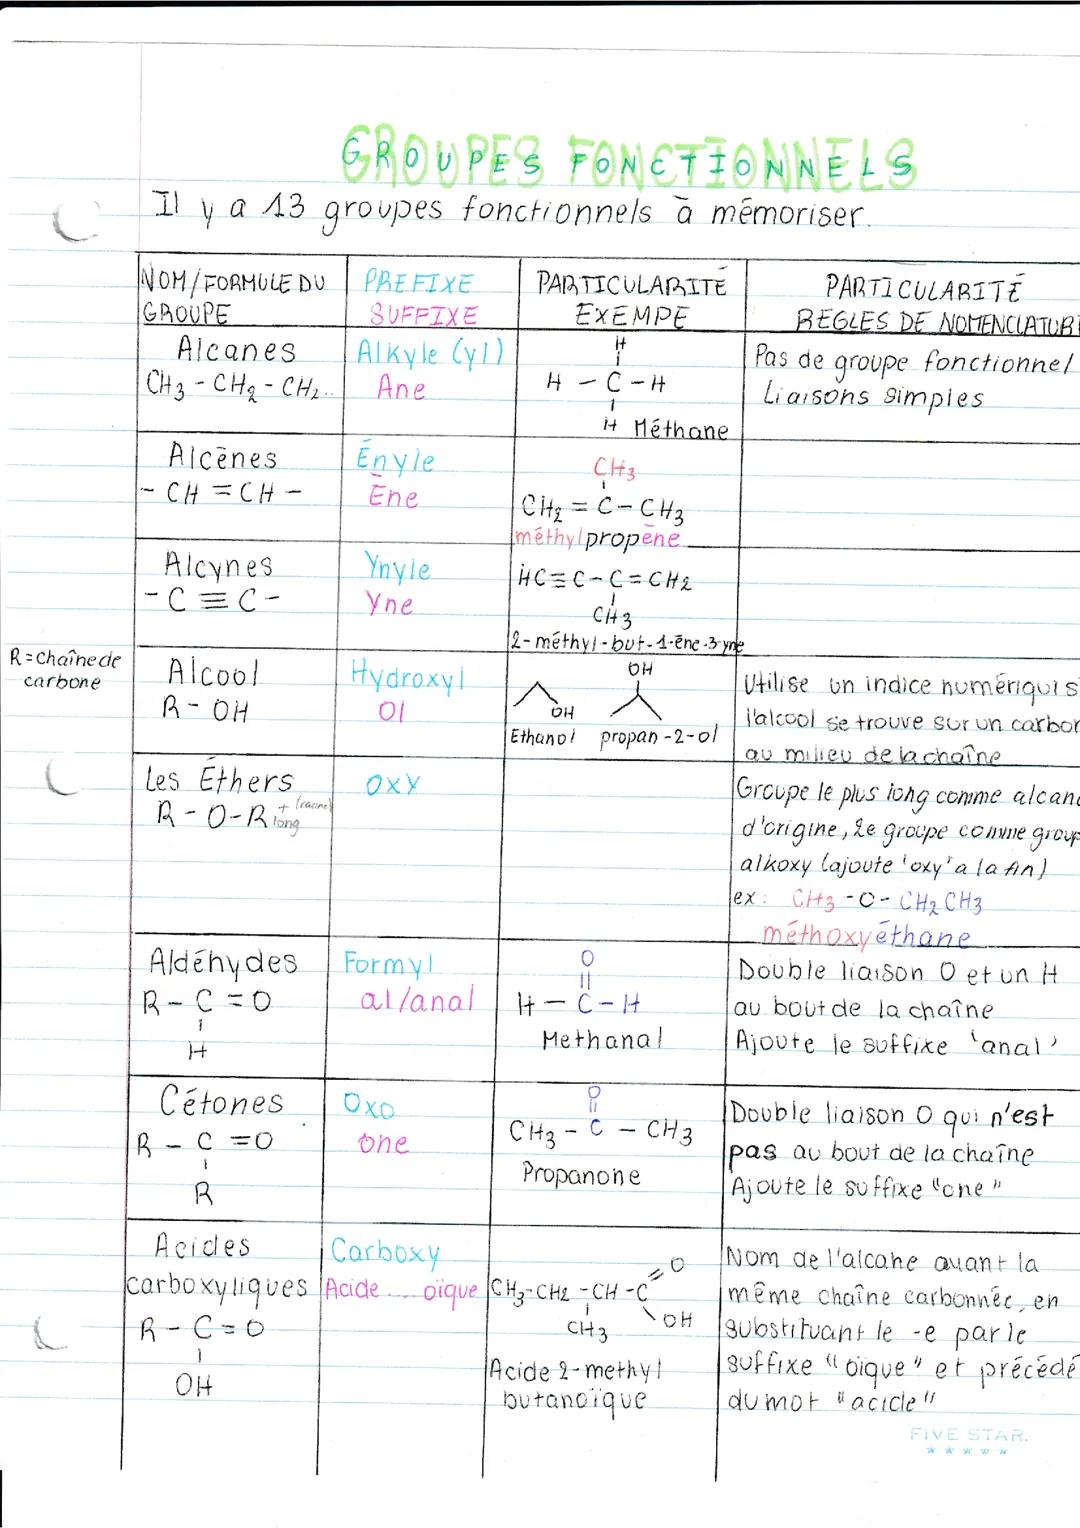 GROUPES FONCTIONNELS
Il y a 13 groupes fonctionnels à mémoriser.
NOM/FORMULE DU GROUPE
PREFIXE
SUFFIXE
PARTICULARITÉ
EXEMPE
PARTICULARITÉ
REGLES DE NOMENCLATUR
Alcanes
CH3 - CH2 - CH2...
Alkyle (yl)
Ane
H
H - C - H
H Méthane
Pas de groupe fonctionnel
Liaisons simples
Alcènes
- CH = CH -
Ényle
Ène
CH3
CH2 = C - CH3
méthylpropène
Alcynes
- C ≡ C -
Ynyle
Yne
HC ≡ C - C = CH2
CH3
2-méthyl-but-1-ène-3-yne
R = chaîne de
carbone
Alcool
R - OH
Hydroxyl
Ol
OH
OH
Ethanol propan-2-ol
Utilise un indice numériquis
l'alcool se trouve sur un carbon
au milieu de la chaîne
Les Éthers
R - O - R + long (racine)
Oxy
Groupe le plus long comme alcane
d'origine, 2e groupe comme group
alkoxy (ajoute 'oxy' a la fin)
ex: CH3 - O - CH2 CH3
méthoxyéthane
Aldéhydes
R - C = O
H
Formyl
al/anal
O
H - C - H
Methanal
Double liaison O et un H
au bout de la chaîne
Ajoute le suffixe 'anal'
Cétones
R - C = O
R
Oxo
one
O
CH3 - C - CH3
Propanone
Double liaison O qui n'est
pas au bout de la chaîne
Ajoute le suffixe "one"
Acides
carboxyliques
R - C = O
OH
Carboxy
Acide ... oïque
O
CH3-CH2 - CH - C
OH
CH3
Acide 2-methyl
butanoïque
Nom de l'alcane ayant la
même chaîne carbonnée, en
substituant le -e par le
suffixe "oïque" et précédé
du mot "acide"
FIVE STAR.